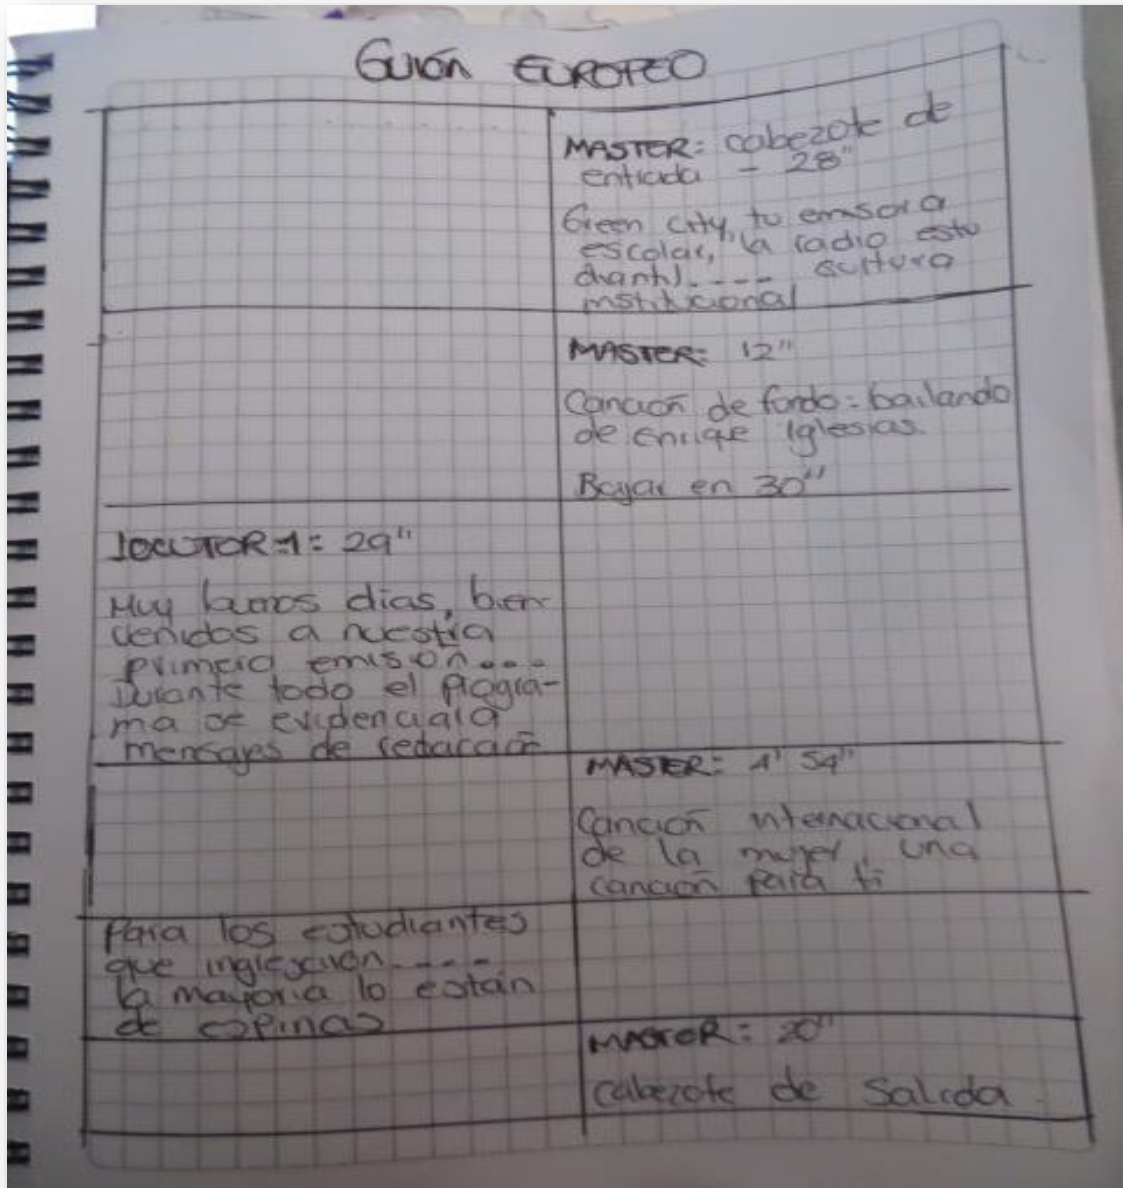 Guión EUROPEO
MASTER: cabezote de
entrada - 28"
Green city, tu emisora
escolar, la radio estu
diantil.---- cultura
institucional
MASTER: 12"
Canción de fondo: bailando
de enrique iglesias.
Bajar en 30"
LOCUTOR-1: 29"
Muy buenos dias, bien-
venidos a nuestra
primera emisión...
Durante todo el Progra-
ma se evidenciara
mensajes de redacción
MASTER: 4' 54"
Canción internacional
de la mujer, una
canción para ti
Para los estudiantes
que ingresaron----
la mayoria lo están
de espinas
MASTER: 20"
cabezote de Salida.